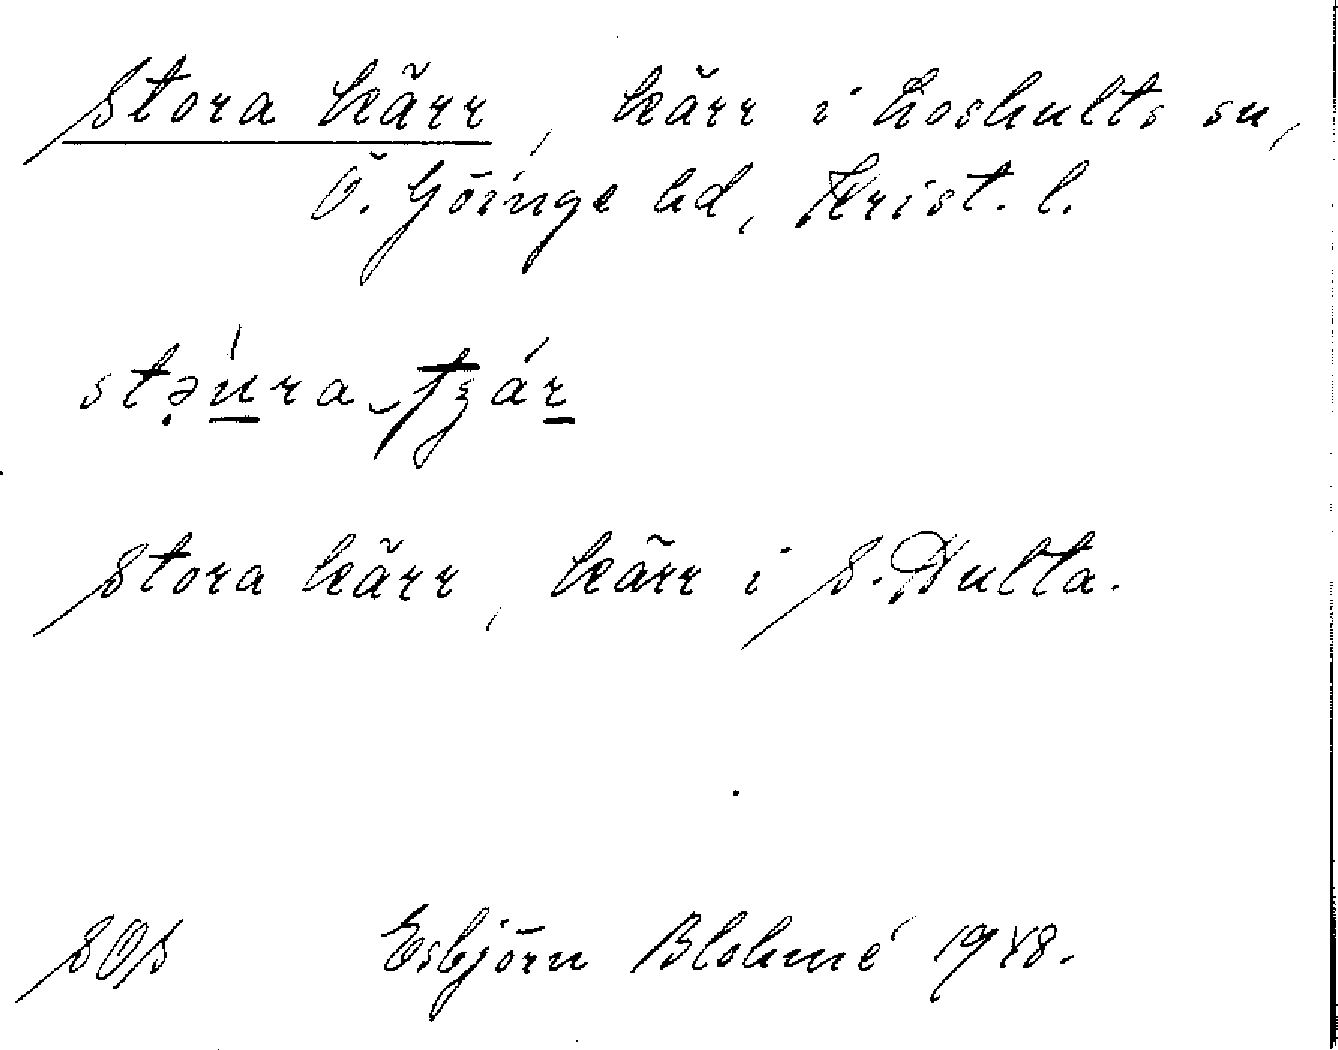 Stora kärr, kärr i Loshults sn,
Ö. Göinge hd, Krist. l.
stə̣úra-tʒár
Stora kärr, kärr i S. Hulta.
SOS Esbjörn Blohmé 1948.